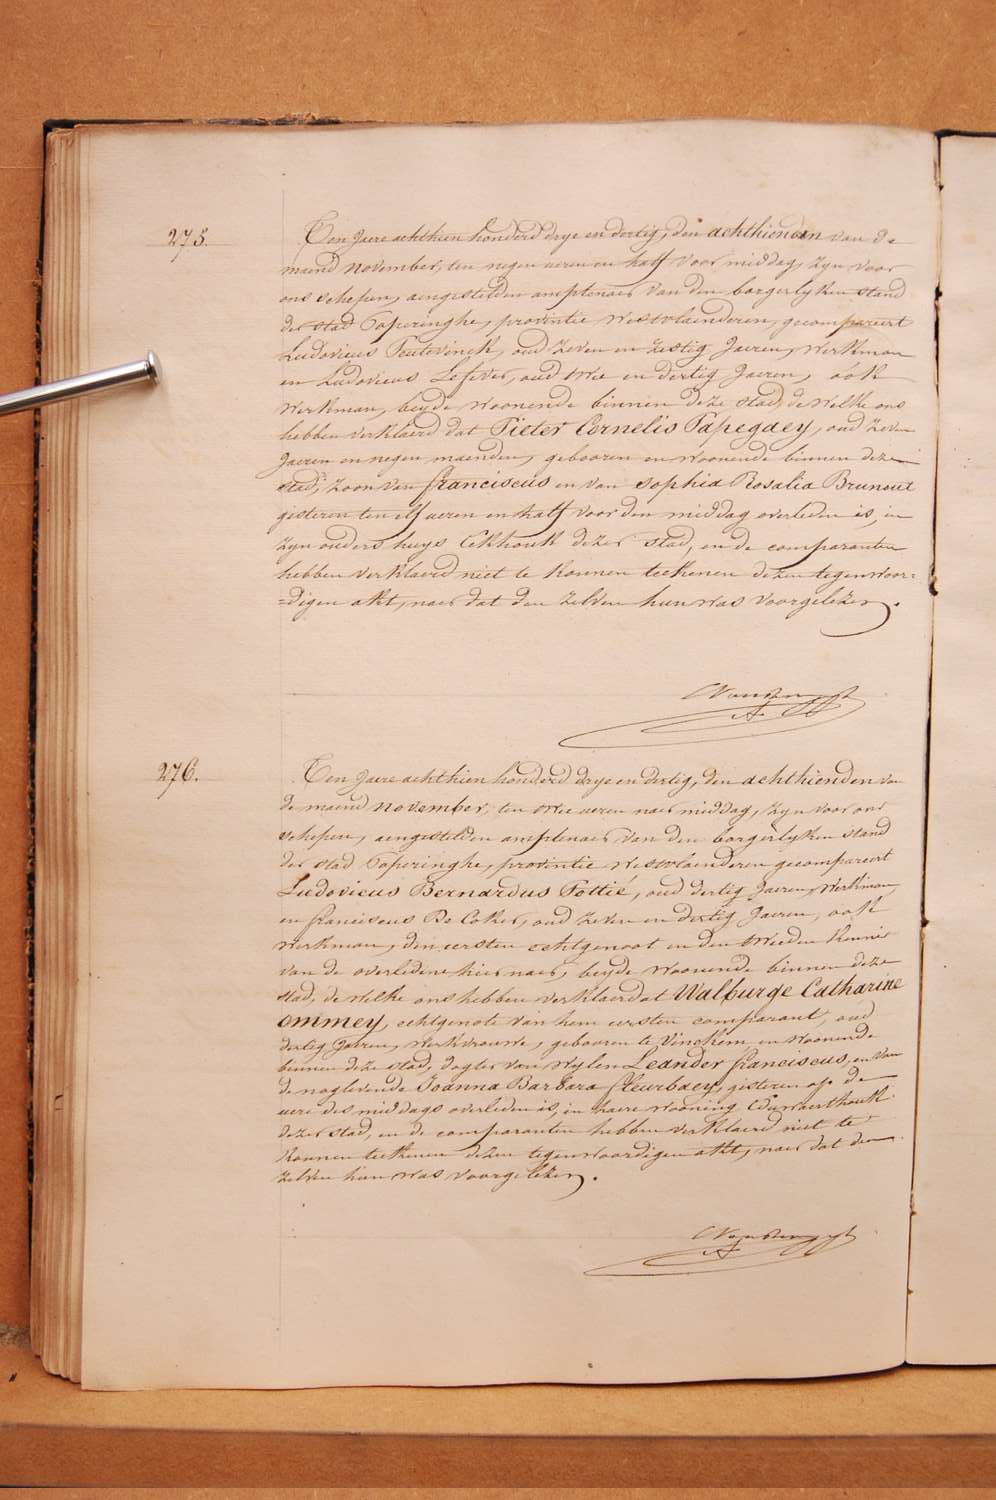 275.
Ten Jaere achthien honderd drye en dertig, den achthienden van de
maend november, ten negen ueren en half voor middag, zyn voor
ons schepen, aengestelden amptenaer van den borgerlyken stand
der stad Poperinghe, provintie Westvlaenderen, gecompareert
Ludovicus Teutevinck, oud zeven en zestig Jaeren, werkman
en Ludovicus Lefever, oud twee en dertig Jaeren, ook
werkman, beyde woonende binnen deze stad, de welke ons
hebben verklaerd dat Pieter Cornelis Papegaey, oud zeven
Jaeren en negen maenden, gebooren en woonende binnen deze
stad, zoon van franciscus en van Sophia Rosalia Brunout
gisteren ten elf ueren en half voor den middag overleden is, in
zyn ouders huys Ekhouk dezer stad, en de comparanten
hebben verklaerd niet te konnen teekenen dezen tegenwoor=
=digen akt, naer dat den zelven hun was voorgelezen.
276.
Ten Jaere achthien honderd drye en dertig, den achthienden van
de maend november, ten twee ueren naer middag, zyn voor ons
schepen, aengestelden amptenaer van den borgerlyken stand
der stad Poperinghe, provintie Westvlaenderen gecompareert
Ludovicus Bernardus Pottié, oud dertig Jaeren, werkman,
en franciscus De Coker, oud zeven en dertig Jaeren, ook
werkman, den eersten echtgenoot en den tweeden kennis
van de overledene hier naer, beyde woonende binnen deze
stad, de welke ons hebben verklaerd at Walburge Catharine
ommey, echtgenote van hem eersten comparant, oud
dertig Jaeren, werkvrouwe, gebooren te Vinckem en woonende
binnen deze stad, dogter van wylen Leander franciscus, en van
de naglevende Joanna Barbara fleurbaey, gisteren op de
uere des middags overleden is, in haere wooning Edewaerthouk
dezer stad, en de comparanten hebben verklaerd niet te
konnen teekenen dezen tegenwoordigen akt, naer dat den
zelven hun was voorgelezen.